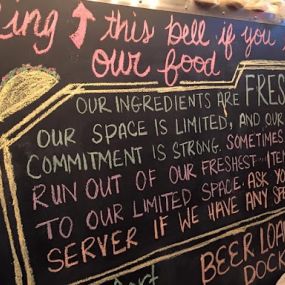 this bell if you
our food
OUR INGREDIENTS ARE FRES
OUR SPACE IS LIMITED, AND OUR
COMMITMENT IS STRONG. SOMETIMES
RUN OUT OF OUR FRESHEST ITE
TO OUR LIMITED SPACE. ASK YO
SERVER IF WE HAVE ANY SPE
BEER LOA
DOCK